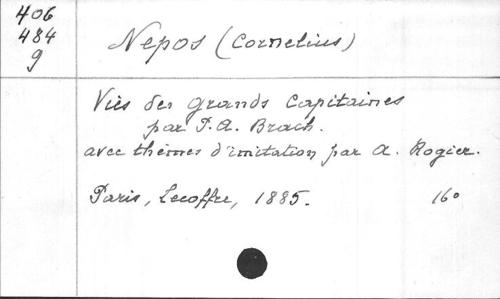 406
484
9
Nepos (Cornelius)
Vies des grands Capitaines
par P. A. Brach.
avec thèmes d'imitation par A. Rogier.
Paris, Lecoffre, 1885. 16°